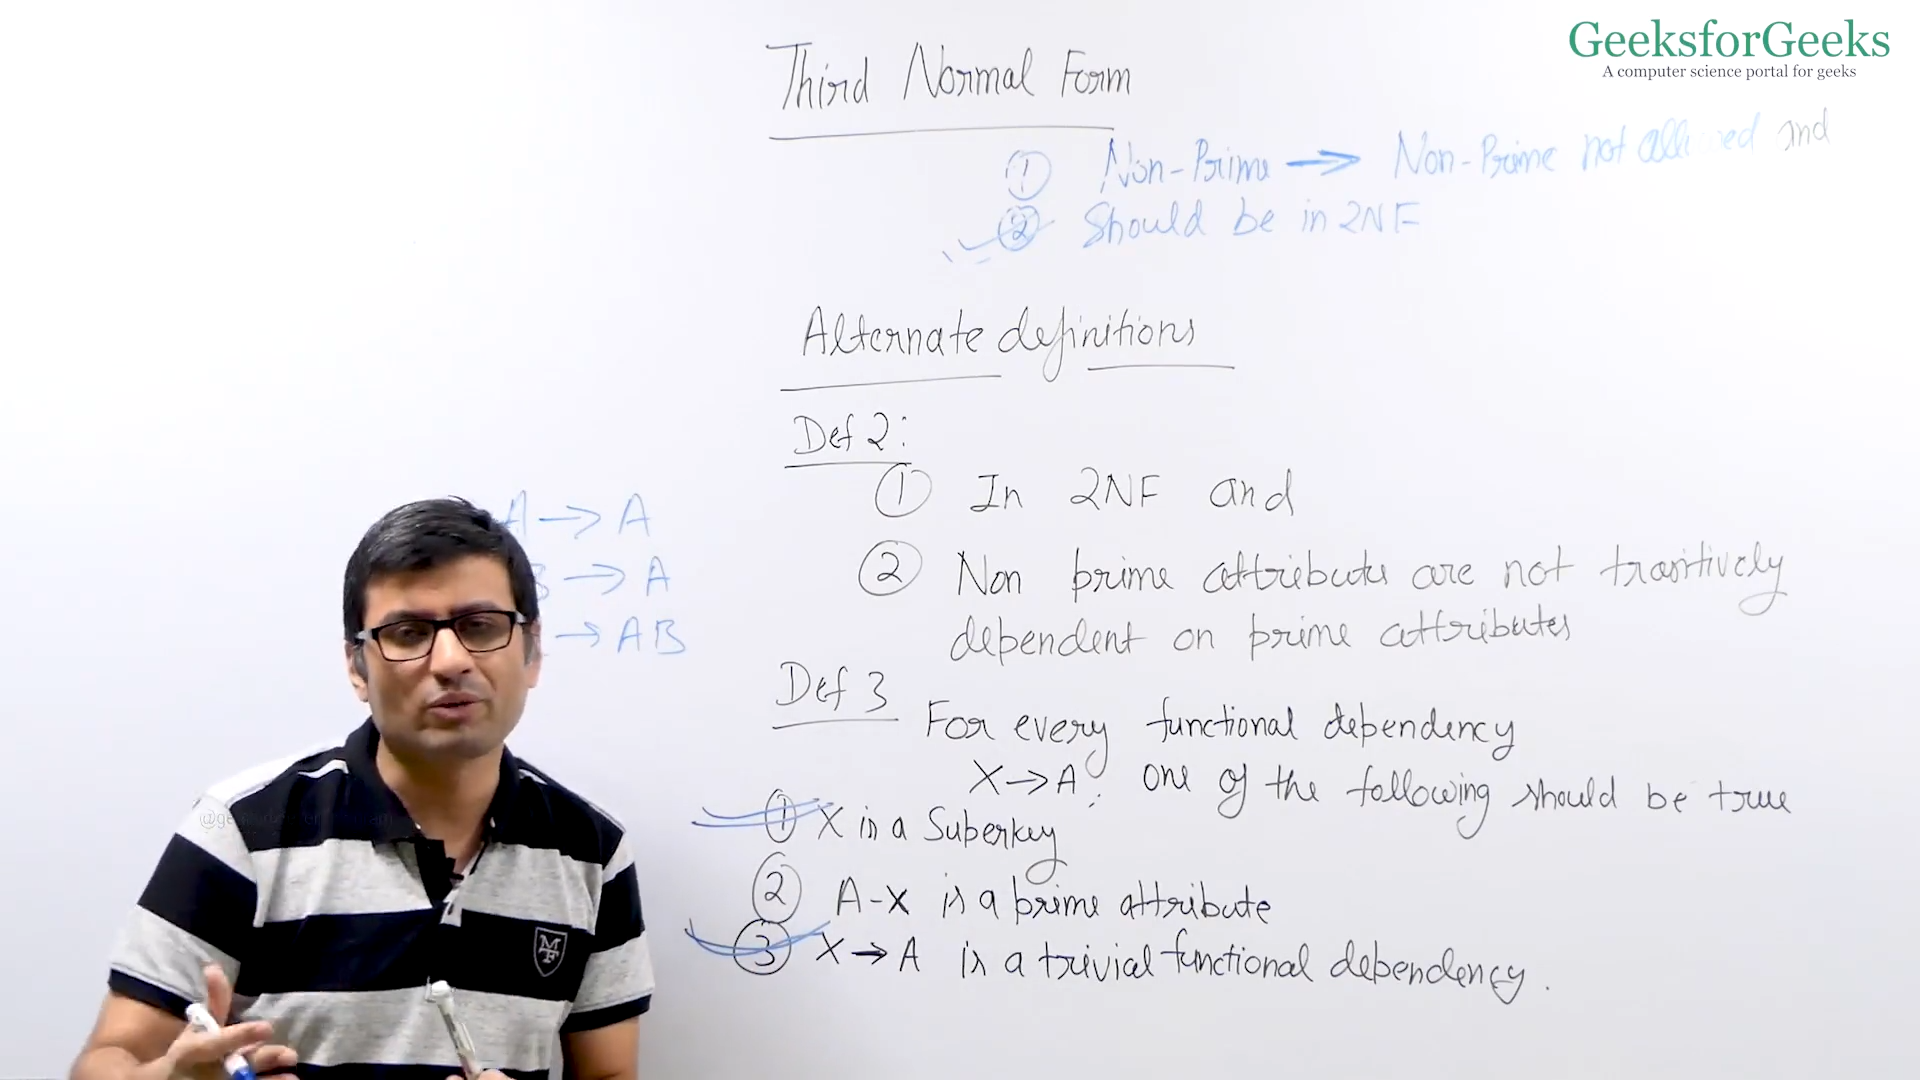 GeeksforGeeks
A computer science portal for geeks
Third Normal Form
① Non-Prime → Non-Prime not and
② Should be in 2NF
Alternate definitions
Def 2:
① In 2NF and
② Non prime attributes are not transitively
dependent on prime attributes
A → A
→ A
→ AB
Def 3
For every functional dependency
X → A, one of the following should be true
① X is a Superkey
② A-X is a prime attribute
③ X → A is a trivial functional dependency.
MF